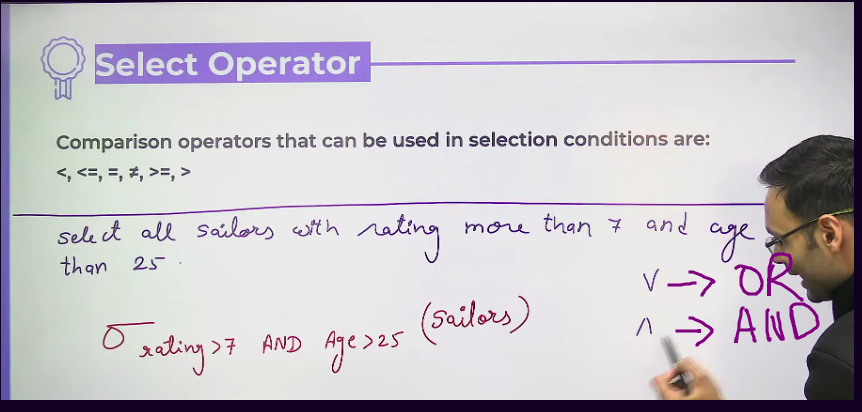 Select Operator
Comparison operators that can be used in selection conditions are:
<, <=, =, ≠, >=, >
select all sailors with rating more than 7 and age
than 25.
∨ → OR
σ rating>7 AND Age>25 (Sailors)
∧ → AND